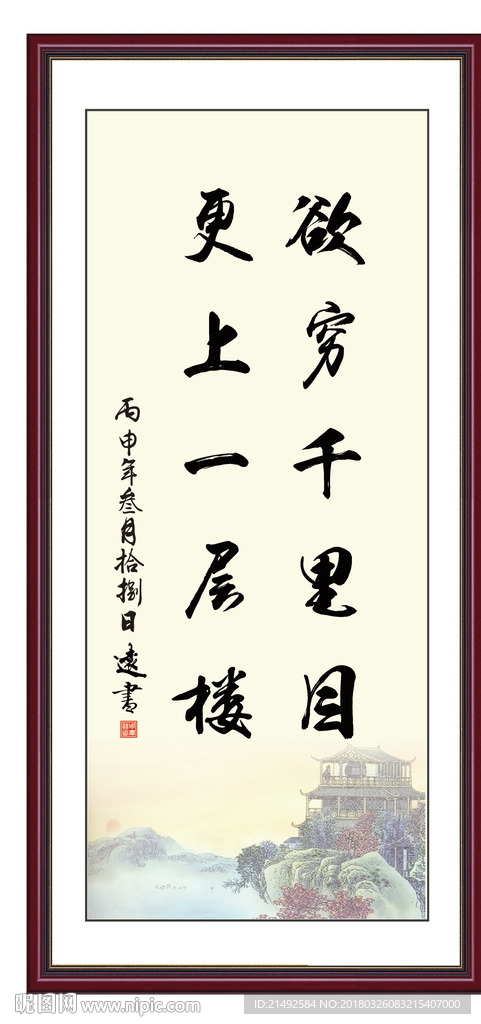 欲穷千里目
更上一层楼
丙申年叁月拾捌日 远书
昵图网 www.nipic.com
ID:21492584 NO:20180326083215407000